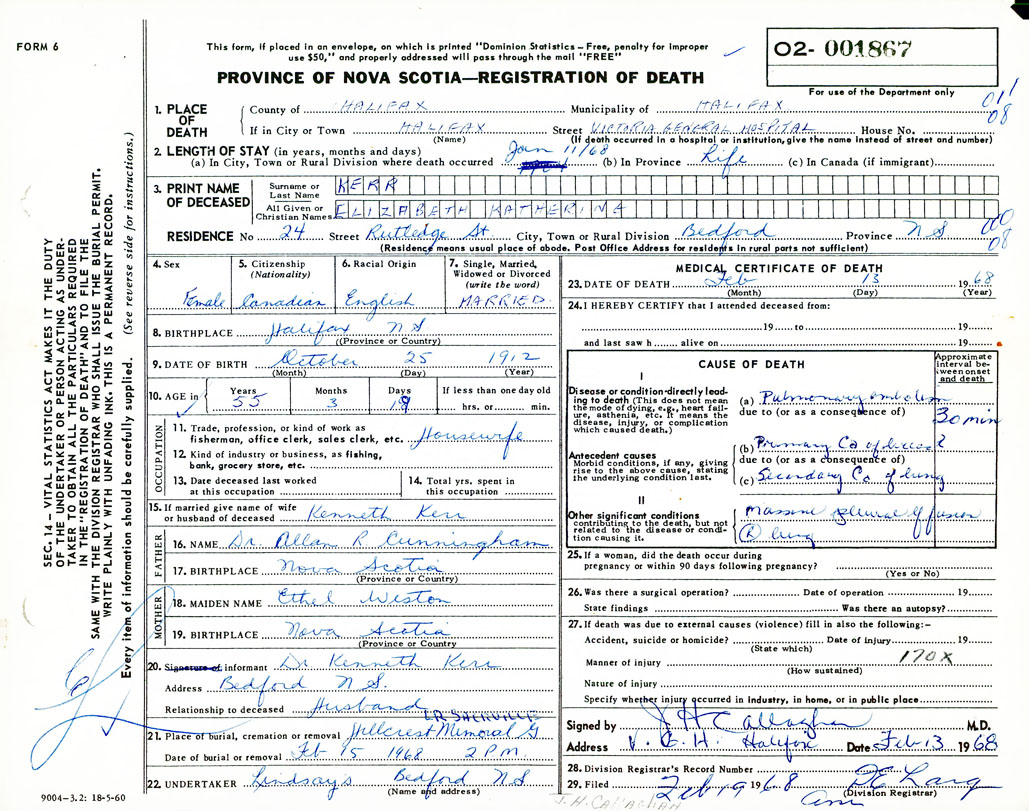 FORM 6
This form, if placed in an envelope, on which is printed "Dominion Statistics – Free, penalty for improper
use $50," and properly addressed will pass through the mail "FREE"
PROVINCE OF NOVA SCOTIA—REGISTRATION OF DEATH
02- 001867
For use of the Department only
011
08
1. PLACE OF DEATH
County of HALIFAX Municipality of HALIFAX
If in City or Town HALIFAX Street VICTORIA GENERAL HOSPITAL House No.
(Name) (If death occurred in a hospital or institution, give the name instead of street and number)
2. LENGTH OF STAY (in years, months and days)
(a) In City, Town or Rural Division where death occurred Jan 11/68 (b) In Province Life (c) In Canada (if immigrant)
3. PRINT NAME OF DECEASED
Surname or Last Name KERR
All Given or Christian Names ELIZABETH KATHERINE
000
08
RESIDENCE No 24 Street Rutledge St. City, Town or Rural Division Bedford Province N S
(Residence means usual place of abode. Post Office Address for residents in rural parts not sufficient)
4. Sex Female
5. Citizenship (Nationality) Canadian
6. Racial Origin English
7. Single, Married, Widowed or Divorced (write the word) MARRIED.
8. BIRTHPLACE Halifax N S
((Province or Country)
9. DATE OF BIRTH October 25 1912
(Month) (Day) (Year)
10. AGE in Years 55 Months 3 Days 19 If less than one day old hrs. or min.
OCCUPATION
11. Trade, profession, or kind of work as
fisherman, office clerk, sales clerk, etc. Housewife
12. Kind of industry or business, as fishing,
bank, grocery store, etc.
13. Date deceased last worked
at this occupation
14. Total yrs. spent in
this occupation
15. If married give name of wife
or husband of deceased Kenneth Kerr
FATHER
16. NAME Dr. Allan R Cunningham
17. BIRTHPLACE Nova Scotia
(Province or Country)
MOTHER
18. MAIDEN NAME Ethel Weston
19. BIRTHPLACE Nova Scotia
(Province or Country
20. Signature of informant Dr Kenneth Kerr
Address Bedford N S.
Relationship to deceased Husband
LR SACKVILLE
21. Place of burial, cremation or removal Hillcrest Memorial G
Date of burial or removal Feb 15 1968 2 P.M.
22. UNDERTAKER Lindsay's Bedford N S
(Name and address)
9004-3.2: 18-5-60
MEDICAL CERTIFICATE OF DEATH
23. DATE OF DEATH Feb 13 1968
(Month) (Day) (Year)
24. I HEREBY CERTIFY that I attended deceased from:
19 to 19
and last saw h alive on 19
CAUSE OF DEATH
Approximate interval between onset and death
I
Disease or condition directly lead-
ing to death (This does not mean
the mode of dying, e.g., heart fail-
ure, asthenia, etc. It means the
disease, injury, or complication
which caused death.)
(a) Pulmonary embolism 30 min
due to (or as a consequence of)
Antecedent causes
Morbid conditions, if any, giving
rise to the above cause, stating
the underlying condition last.
(b) Primary Ca of breast
due to (or as a consequence of)
(c) Secondary Ca of lung
II
Other significant conditions
contributing to the death, but not
related to the disease or condi-
tion causing it.
Massive pleural effusion
lung
25. If a woman, did the death occur during
pregnancy or within 90 days following pregnancy?
(Yes or No)
26. Was there a surgical operation? Date of operation 19
State findings Was there an autopsy?
27. If death was due to external causes (violence) fill in also the following:–
Accident, suicide or homicide? Date of injury 19
(State which)
Manner of injury 170X
(How sustained)
Nature of injury
Specify whether injury occurred in industry, in home, or in public place
Signed by J H Callaghan M.D.
Address V. G. H. Halifax Date Feb 13 1968
28. Division Registrar's Record Number
29. Filed Feb 19 1968
(Division Registrar)
J. H. CALLAGHAN
SEC. 14 – VITAL STATISTICS ACT MAKES IT THE DUTY
OF THE UNDERTAKER OR PERSON ACTING AS UNDER-
TAKER TO OBTAIN ALL THE PARTICULARS REQUIRED
IN THE "REGISTRATION OF DEATH" AND TO FILE THE
SAME WITH THE DIVISION REGISTRAR WHO SHALL ISSUE THE BURIAL PERMIT.
WRITE PLAINLY WITH UNFADING INK. THIS IS A PERMANENT RECORD.
Every item of information should be carefully supplied. (See reverse side for instructions.)